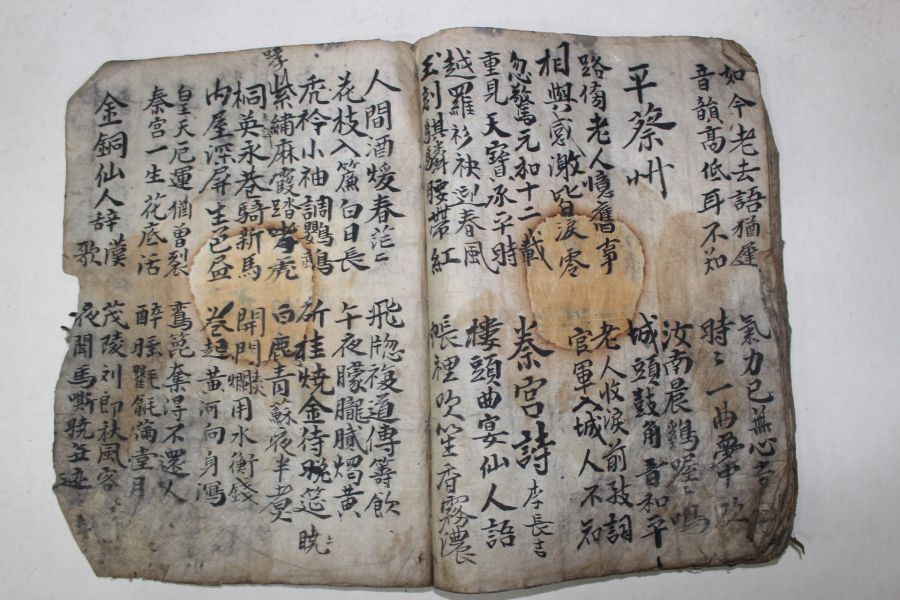 如今老去語猶遲
音韻高低耳不知
氣力已無心
時〻一曲夢中吹
平蔡州
汝南晨鷄喔〻鳴
城頭鼓角音和平
路傍老人憶舊事
相與感激皆淚零
老人收淚前致詞
官軍入城人不知
忽驚元和十二載
重見天寶承平時
秦宮詩 李長吉
越羅衫袂迎春風
玉刻騏驎腰帶紅
樓頭曲宴仙人語
帳裡吹笙香霧濃
人間酒煖春茫〻
花枝入簾白日長
飛牎複道傳籌飮
午夜朦朧膩燭黃
禿衿小袖調鸚鵡
紫繡麻霞踏哮虎
斫桂燒金待曉筵
白鹿青蘇夜半煑
桐英永巷騎新馬
內屋深屛生色畵
開門爛用水衡錢
卷起黃河向身瀉
皇天厄運猶曾裂
秦宮一生花底活
鸞篦奪得不還人
醉睡氍毹滿堂月
金銅仙人辭漢歌
茂陵刘郎秋風客
夜聞馬嘶曉无迹